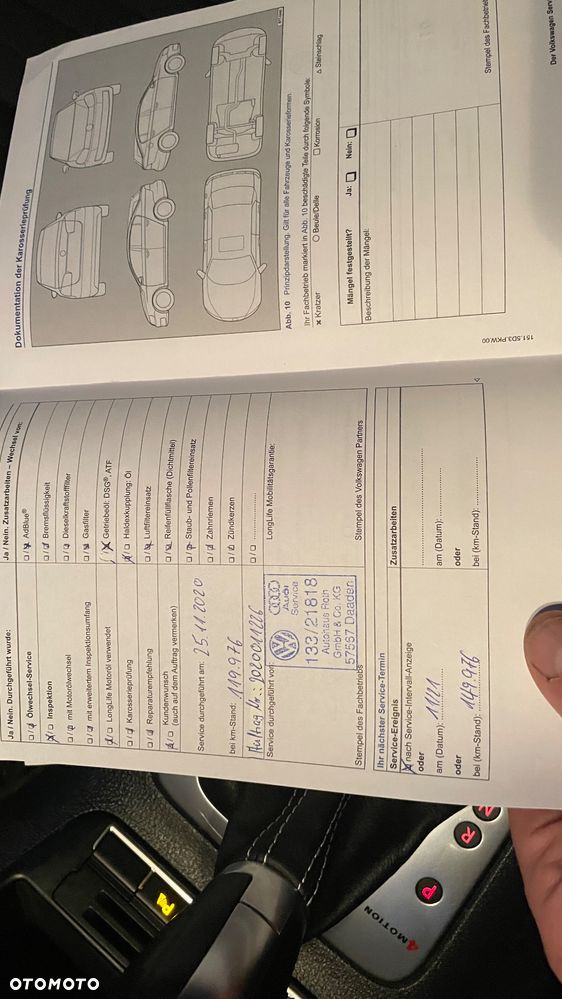 Ja / Nein. Durchgeführt wurde:
Ölwechsel-Service
Inspektion
mit Motorölwechsel
mit erweitertem Inspektionsumfang
LongLife Motoröl verwendet
Karosserieprüfung
Reparaturempfehlung
Kundenwunsch
(auch auf dem Auftrag vermerken)
Service durchgeführt am: 25.11.2020
bei km-Stand: 119.976
Auftrag Nr.: 3020011226
Service durchgeführt von:
Audi
Service
133/21818
Autohaus Roth
GmbH & Co. KG
57567 Daaden
Stempel des Fachbetriebs
Ja / Nein. Zusatzarbeiten – Wechsel von:
AdBlue®
Bremsflüssigkeit
Dieselkraftstofffilter
Gasfilter
Getriebeöl: DSG®, ATF
Haldexkupplung: Öl
Luftfiltereinsatz
Reifenfüllflasche (Dichtmittel)
Staub- und Pollenfiltereinsatz
Zahnriemen
Zündkerzen
LongLife Mobilitätsgarantie:
Stempel des Volkswagen Partners
Ihr nächster Service-Termin
Service-Ereignis
nach Service-Intervall-Anzeige
oder
am (Datum): 11/21
oder
bei (km-Stand): 149.976
Zusatzarbeiten
am (Datum):
oder
bei (km-Stand):
Dokumentation der Karosserieprüfung
Abb. 10 Prinzipdarstellung. Gilt für alle Fahrzeuge und Karosserieformen.
Ihr Fachbetrieb markiert in Abb. 10 beschädigte Teile durch folgende Symbole:
x Kratzer
○ Beule/Delle
□ Korrosion
△ Steinschlag
Mängel festgestellt? Ja: Nein:
Beschreibung der Mängel:
Stempel des Fachbetrieb
151.5D3.PKW.00
Der Volkswagen Serv
P
R
N
4MOTION
OTOMOTO